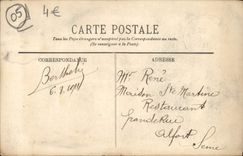 05
4€
CARTE POSTALE
Tous les Pays étrangers n'acceptent pas la Correspondance au recto.
(Se renseigner à la Poste).
CORRESPONDANCE
ADRESSE
Berthely
Mr René
Maison Ste Martine
Restaurant
Grande Rue
Alfort
Seine